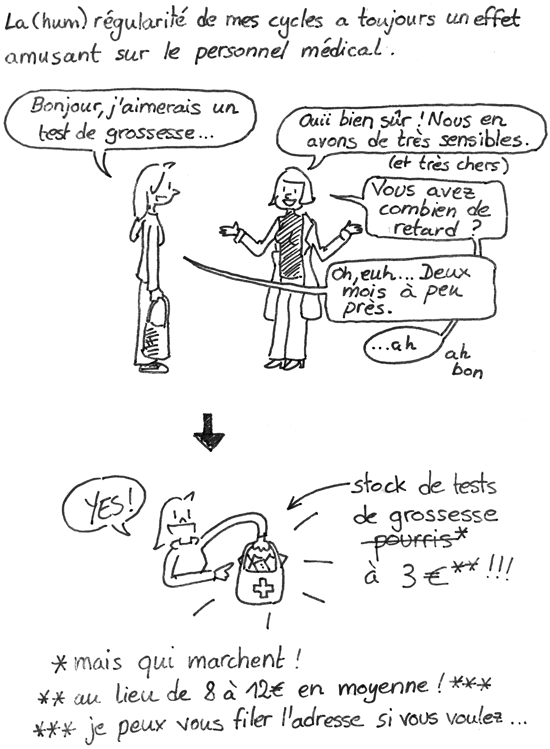 La (hum) régularité de mes cycles a toujours un effet
amusant sur le personnel médical.
Bonjour, j'aimerais un
test de grossesse...
Ouii bien sûr ! Nous en
avons de très sensibles.
(et très chers)
Vous avez
combien de
retard ?
Oh, euh... Deux
mois à peu
près.
...ah
ah
bon
YES!
stock de tests
de grossesse
pourris*
à 3€** !!!
* mais qui marchent !
** au lieu de 8 à 12€ en moyenne ! ***
*** je peux vous filer l'adresse si vous voulez...